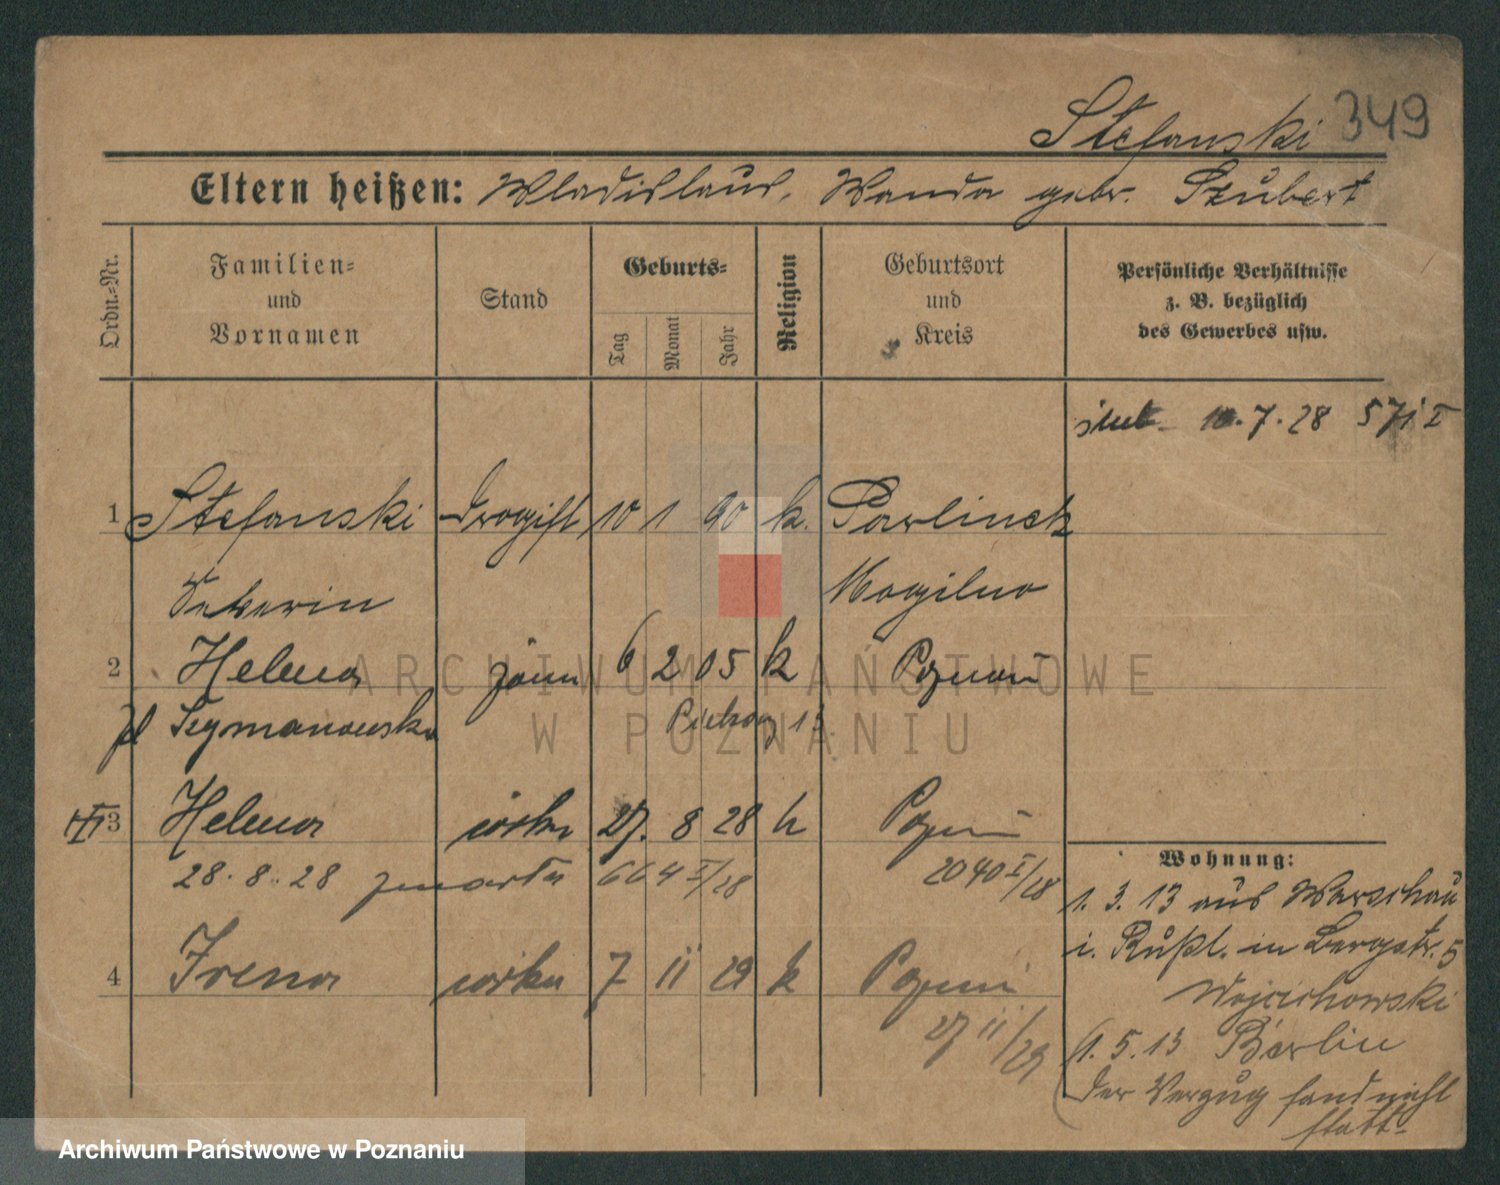 Stefanski 349
Eltern heißen: Wladislaus, Wanda geb. Szubert
Ordn.-Nr.
Familien=
und
Vornamen
Stand
Geburts=
Tag
Monat
Jahr
Religion
Geburtsort
und
Kreis
Persönliche Verhältnisse
z. B. bezüglich
des Gewerbes usw.
ślub 7. 28 571 I
1 Stefanski Drogist 10 1 90 k. Pawlinek
Mogilno
2 Helena żona 6 2 05 k Poznań
Szymanowska
3 Helena córka 27. 8 28 k Poznań
28. 8. 28 zmarła 664 I/28 2040 I/28
4 Irena córka 7 11 29 k Poznań
27 11/29
Wohnung:
1. 3. 13 aus Warschau
i. Rußl. in Bergstr. 5
Wojcichowski
1. 5. 13 Berlin
Der Verzug fand nicht
statt.
ARCHIWUM PAŃSTWOWE
W POZNANIU
Archiwum Państwowe w Poznaniu